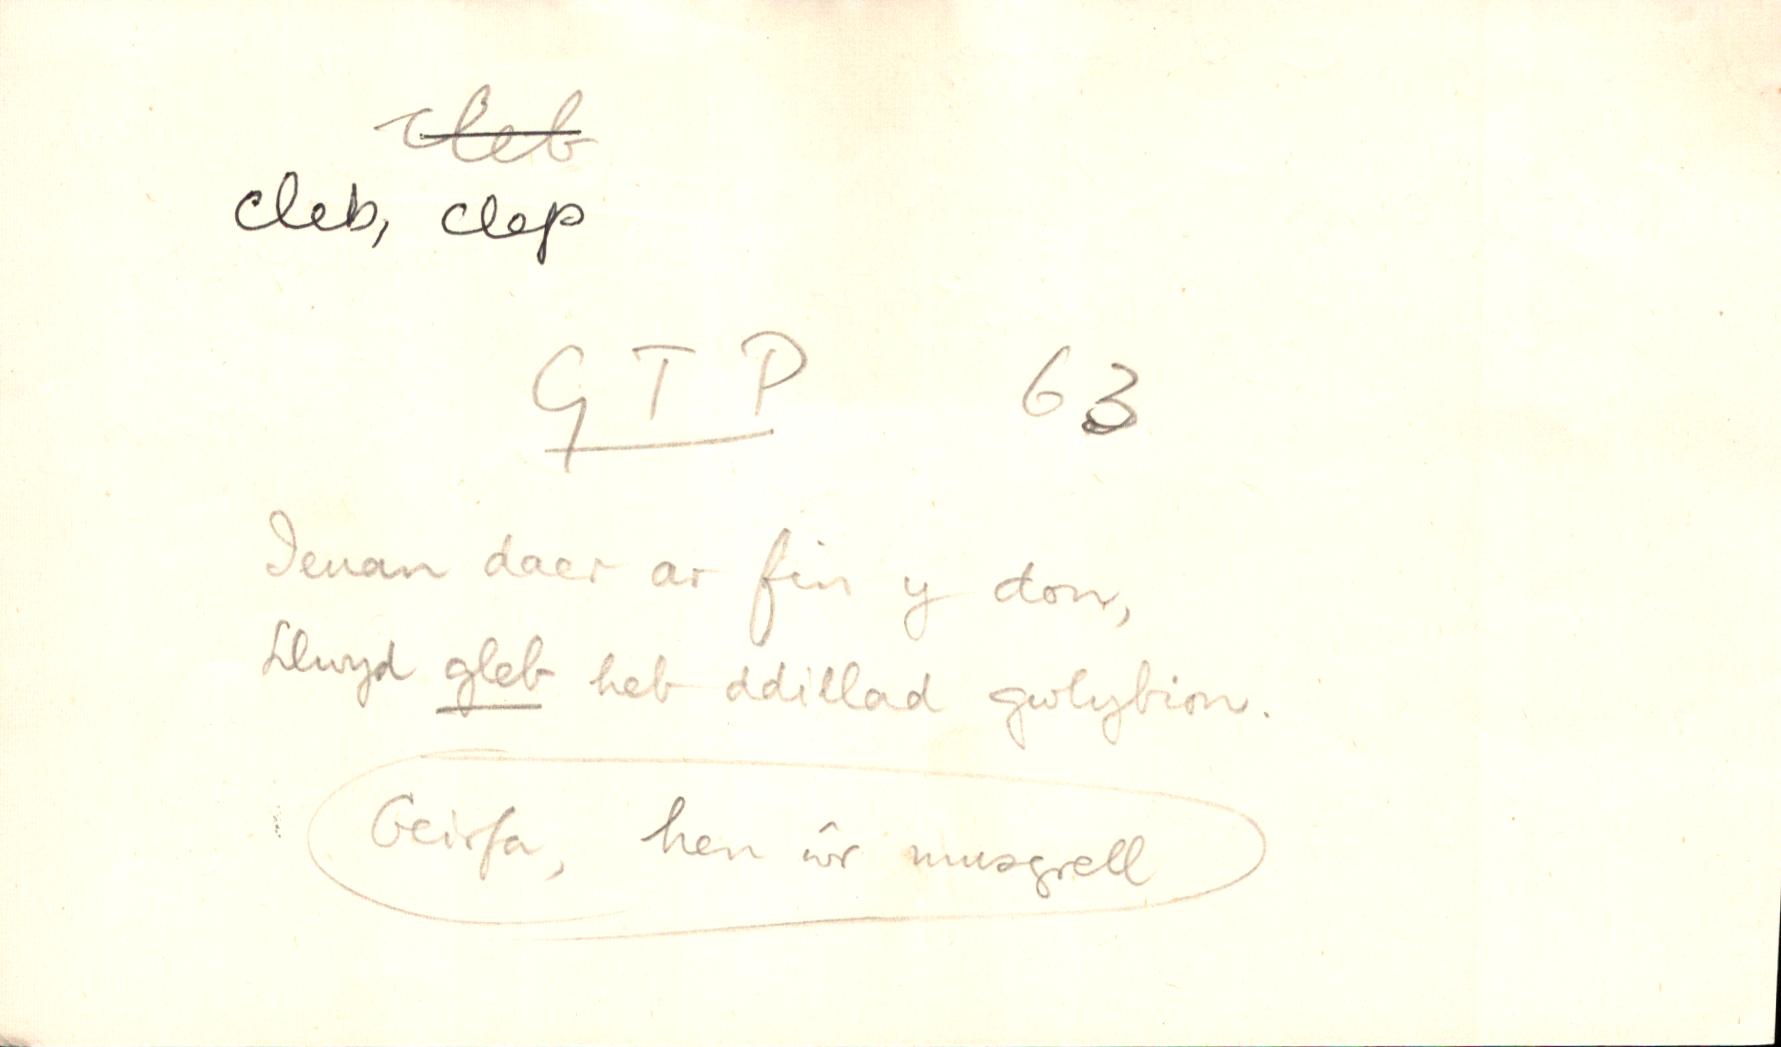 cleb
cleb, clep
GTP 63
Ieuan daer ar fin y don,
Llwyd gleb heb ddillad gwlybion.
Geirfa, hen ŵr musgrell